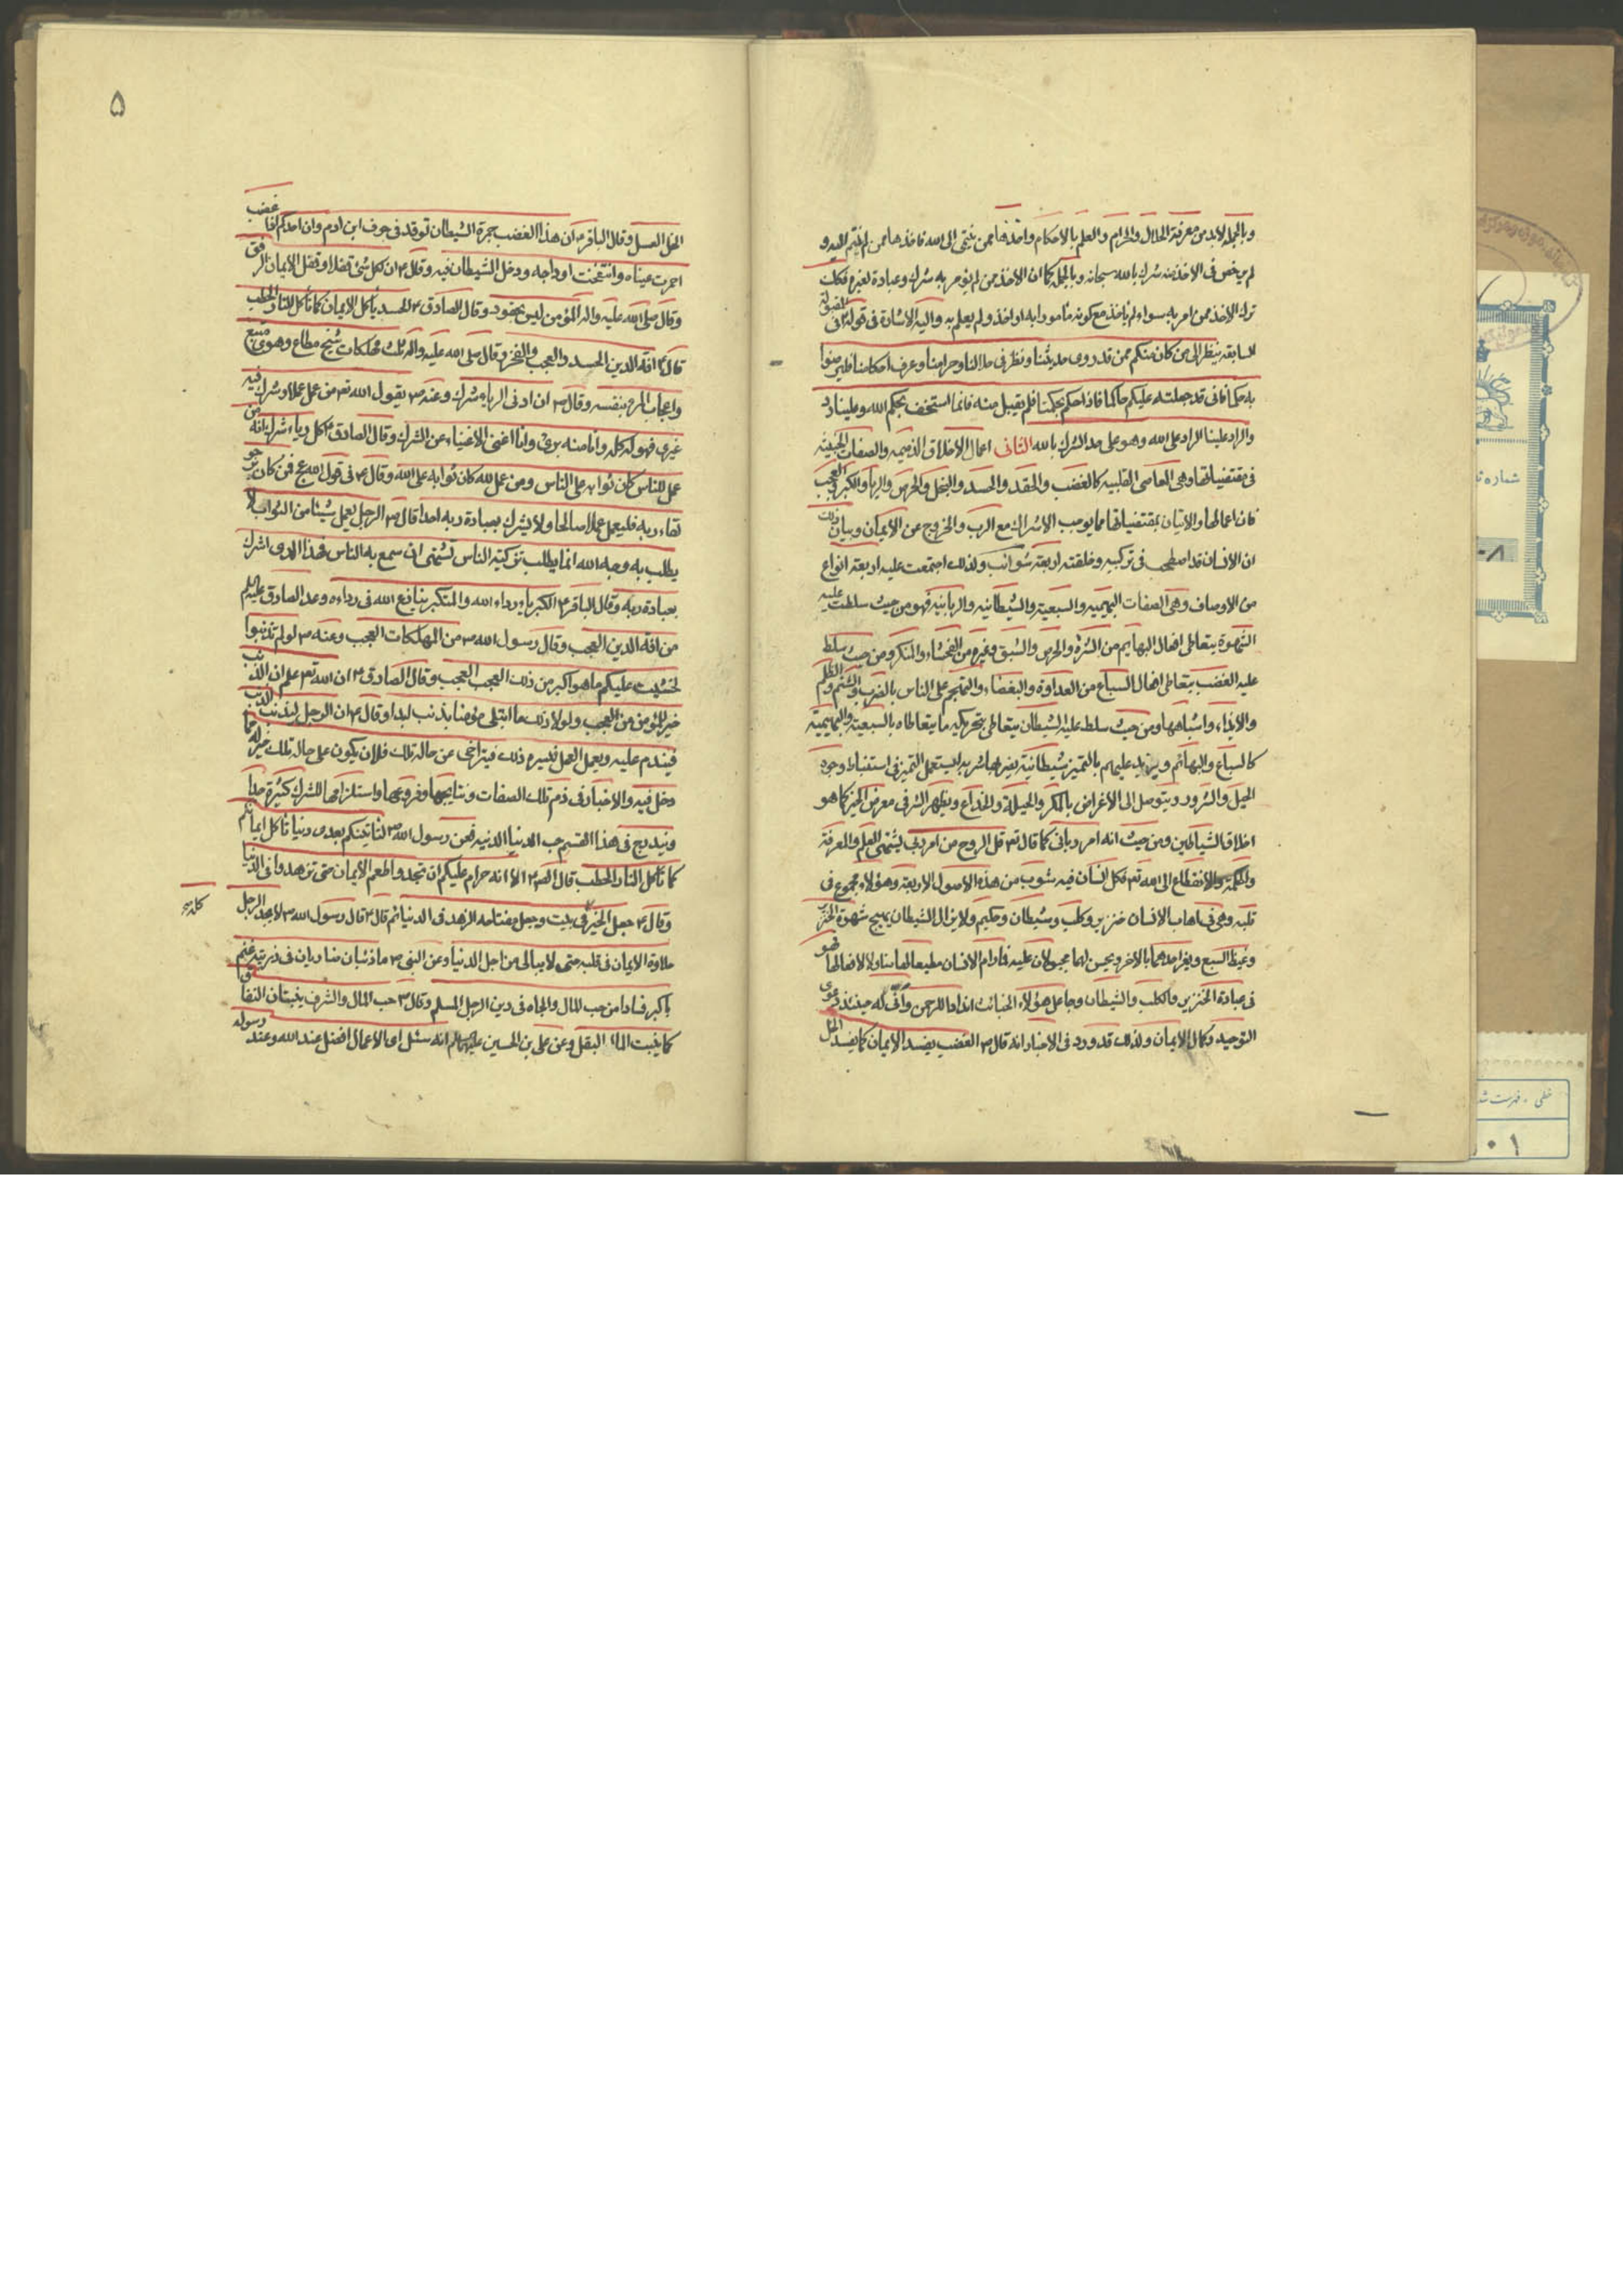 وبالجملة لابد من معرفة الحلال والحرام والعلم بالاحكام واخذها ممن ينتهى الى الله فاخذها ممن لم ينته اليه و
لم يرخص فى الاخذ منه شرك بالله سبحانه وبالجملة كما ان الاخذ ممن لم يؤمر به شرك وعبادة لغيره فكذلك
ترك الاخذ ممن امر به سواء لم ياخذ مع كونه مأمورا به او اخذ ولم يعلم به واليه الاشارة فى قوله فى المقبولة
السابقه ينظر الى من كان منكم ممن قد روى حديثنا ونظر فى حلالنا وحرامنا وعرف احكامنا فليرضوا
به حكما فانى قد جعلته عليكم حاكما فاذا حكم بحكمنا فلم يقبل منه فانما استخف بحكم الله وعلينا رد
والراد علينا الراد على الله وهو على حد الشرك بالله الثانى اعمال الاخلاق الذميمه والصفات الخبيثه
فى مقتضياتها وهى المعاصى القلبيه كالغضب والحقد والحسد والبخل والحرص والريا والكبر والعجب
فان اعمالها والاتيان بمقتضياتها مما يوجب الاشراك مع الرب والخروج عن الايمان وبيان ذلك
ان الانسان قد اصطحب فى تركيبه وخلقته اربعة شوائب ولذلك اجتمعت عليه اربعة انواع
من الاوصاف وهى الصفات البهيميه والسبعيه والشيطانيه والربانيه فهو من حيث سلطت عليه
الشهوة يتعاطى افعال البهايم من الشره والحرص والشبق وغيره من الفحشاء والمنكر ومن حيث سلط
عليه الغضب يتعاطى افعال السباع من العداوة والبغضاء والتهجم على الناس بالضرب والشتم والظلم
والايذاء واشباهها ومن حيث سلط عليه الشيطان يتعاطى بتحريكه ما يتعاطاه بالسبعيه والبهيميه
كالسباع والبهائم ويزيد عليهم بالتميز شيطانية يستعمل التميز فى استنباط وجوه
الحيل والشرور ويتوصل الى الاغراض بالمكر والحيلة والخداع ويظهر الشر فى معرض الخير كما هو
اخلاق الشياطين ومن حيث انه امر ربانى كما قال تعـ قل الروح من امر ربى يشتهى العلم والمعرفة
والحكمة والانقطاع الى الله تعـ فكل انسان فيه شوب من هذه الاصول الاربعة وهؤلاء مجموع فى
قلبه وهى فى اهاب الانسان خنزير وكلب وشيطان وحكيم ولا يزال الشيطان يهيج شهوة الخنزير
وغيظ السبع ويغرا احدهما بالاخر ويحسن لهما مجبولان عليه فمادام الانسان مطيعا لها فهو
فى عبادة الخنزير والكلب والشيطان وجاعل هؤلاء الخبائث اندادا للرحمن وانى له حينئذ دعوى
التوحيد وكمال الايمان ولذلك قد ورد فى الاخبار انه قال ص الغضب يفسد الايمان كما يفسد الخل
۵
الخل العسل وقال الباقر ع ان هذا الغضب جمرة الشيطان توقد فى جوف ابن ادم وان احدكم اذا غضب
احمرت عيناه وانتفخت اوداجه ودخل الشيطان فيه وقال ع ان لكل شئ قفلا وقفل الايمان الرفق
وقال صلى الله عليه واله المؤمن ليس بحقود وقال الصادق ع الحسد يأكل الايمان كما تأكل النار الحطب
قال ع افة الدين الحسد والعجب والفخر وقال صلى الله عليه واله ثلث مهلكات شح مطاع وهوى متبع
واعجاب المرء بنفسه وقال ص ان ادنى الرياء شرك وعنه ص يقول الله تعـ من عمل عملا وشرك فيه
غيرى فهو له كله وانا منه برئ وانا اغنى الاغنياء عن الشرك وقال الصادق ع كل رياء شرك انه من
عمل للناس كان ثوابه على الناس ومن عمل لله كان ثوابه على الله وقال ع فى قول الله عج فمن كان يرجو
لقاء ربه فليعمل عملا صالحا ولا يشرك بعبادة ربه احدا قال ع الرجل يعمل شيئا من الثواب لا
يطلب به وجه الله انما يطلب تزكية الناس تشتهى ان سمع به الناس فهذا الذى اشرك
بعبادة ربه وقال الباقر ع الكبرياء رداء الله والمتكبر ينازع الله فى رداءه وعد الصادق عليه السلم
من افة الدين العجب وقال رسول الله ص من المهلكات العجب وعنه ص لو لم تذنبوا
لخشيت عليكم ما هو اكبر من ذلك العجب العجب وقال الصادق ع ان الله تعـ علم ان الذنب
خير للمؤمن من العجب ولولا ذلك ما ابتلى مؤمنا بذنب ابدا وقال ع ان الرجل ليذنب الذنب
فيندم عليه ويعمل العمل فيسره ذلك فيتراخى عن حاله تلك فلان يكون على حاله تلك خير له مما
دخل فيه والاخبار فى ذم تلك الصفات ونتايجها وفروعها واستلزامها للشرك كثيرة جدا
ويندرج فى هذا القسم حب الدنيا الدنيه فعن رسول الله ص لتأتينكم بعدى دنيا تأكل ايمانكم
كما تأكل النار الحطب قال الصـ ع الا انه حرام عليكم ان تجدوا طعم الايمان حتى تزهدوا فى الدنيا
وقال ع جعل الخير كله فى بيت وجعل مفتاحه الزهد فى الدنيا ثم قال ع قال رسول الله ص لا يجد الرجل
حلاوة الايمان فى قلبه حتى لا يبالى من اجل الدنيا وعن النبى ص ما ذئبان ضاريان فى زريبة غنم
باكثر فسادا من حب المال والجاه فى دين الرجل المسلم وقال ص حب المال والشرف ينبتان النفاق
كما ينبت الماء البقل وعن على بن الحسين عليهما السلم انه سئل اى الاعمال افضل عند الله وعند رسوله
شماره
خطى - فهرست شد